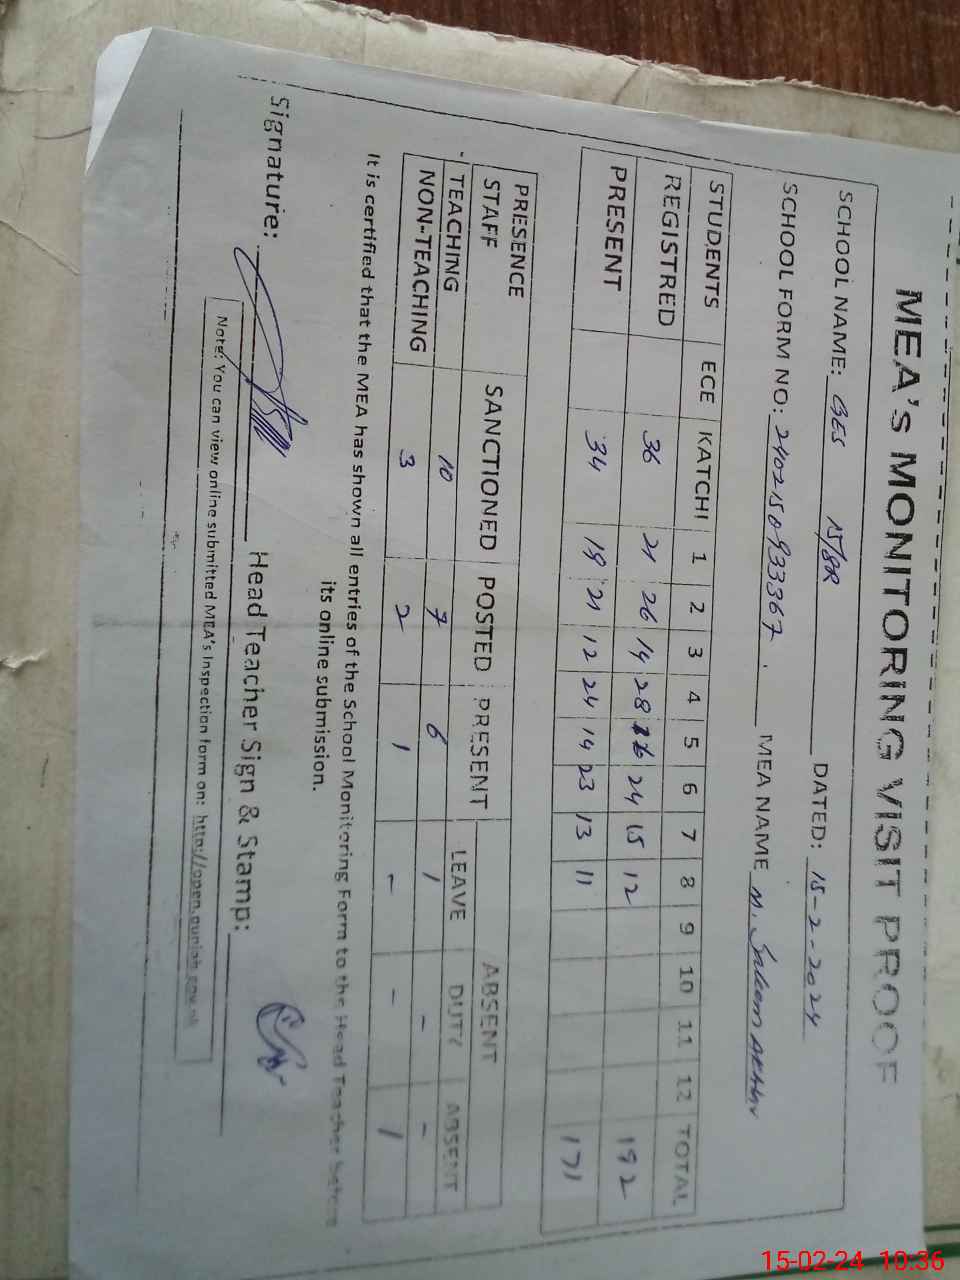 MEA's MONITORING VISIT PROOF
SCHOOL NAME: GES 15/8R DATED: 15-2-2024
SCHOOL FORM NO: 2402150933367 MEA NAME M. Saleem Akhtar
STUDENTS ECE KATCHI 1 2 3 4 5 6 7 8 9 10 11 12 TOTAL
REGISTRED 36 21 26 14 28 16 24 15 12 192
PRESENT 34 19 21 12 24 14 23 13 11 171
PRESENCE STAFF SANCTIONED POSTED PRESENT ABSENT
LEAVE DUTY ABSENT
TEACHING 10 7 6 1 - -
NON-TEACHING 3 2 1 - - 1
It is certified that the MEA has shown all entries of the School Monitoring Form to the Head Teacher before
its online submission.
Signature: Head Teacher Sign & Stamp:
Note: You can view online submitted MEA's Inspection form on: http://open.punjab.gov.pk
15-02-24 10:36